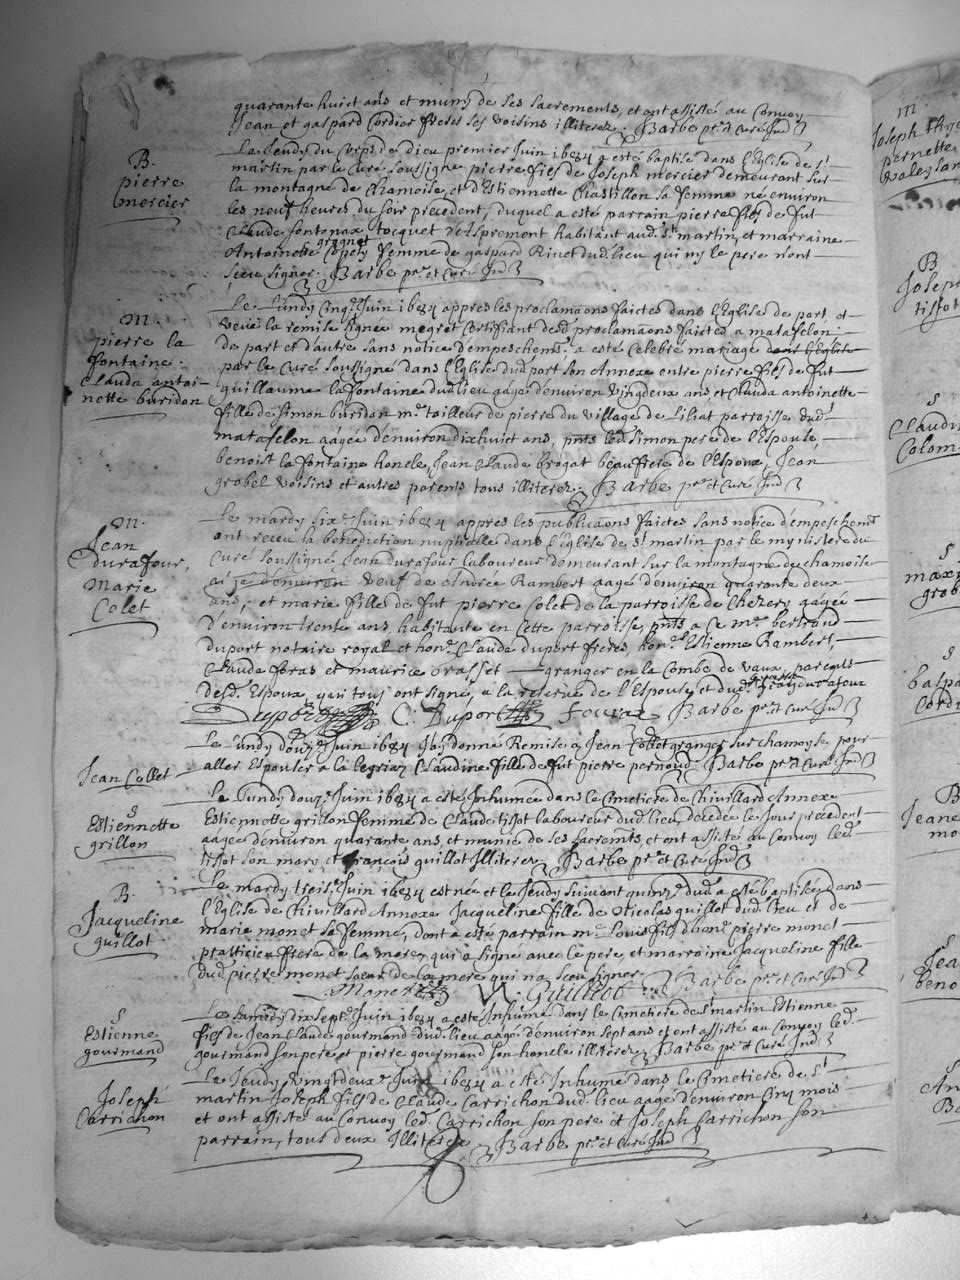 quarante huict ans et muny de ses sacrements, et ont assisté au Convoy
Jean et gaspard Cordier freres ses voisins illiterez. Barbe p.re et Curé Ind
B.
pierre
mercier
Le Jeudy du Corps de dieu premier Juin 1684 a esté baptisé dans l'Eglise de s.t
martin par le Curé soussigné pierre fils de Joseph mercier demeurant sur
la montagne de Chamoise, et d'Estiennette Chastillon sa femme né environ
les neuf heures du soir precedent, duquel a esté parrain pierre fils de fut
Claude fontenax habitant aud. s.t martin, et marraine
Antoinette femme de gaspard Rivet dud. lieu qui ny le pere n'ont
sceu signer. Barbe p.re et Curé Ind
M.
pierre la
fontaine.
Clauda antoi-
nette buridon
Le Lundy cinq.e Juin 1684 appres les proclamaons faictes dans l'Eglise de port et
veue la remise signée megret Certifiant desd. proclamaons faictes a matafelon
de part et d'autre sans notice d'empeschem.t a esté Celebré mariage dans l'Eglise
par le Curé soussigné dans l'Eglise dud. port son Annexe entre pierre fils de fut
guillaume la fontaine dud. lieu aagé d'environ vingdeux ans et Clauda antoinette
fille de simon buridon m.e tailleur de pierre du village de siliat parroisse dud.
matafelon aagée d'environ dixhuict ans, pnts led. simon pere de l'Espouse,
benoist la fontaine honcle, Jean Claude brogat beaufrere de l'Espoux, Jean
grobel voisins et autres parents tous illiterez. Barbe p.re et Curé Ind
M.
Jean
durafour,
Marie
Colet
Le mardy six.e Juin 1684 appres les publicaons faictes sans notice d'empeschem.t
ont receu la benediction nuptielle dans l'Eglise de s.t martin par le mynistere du
Curé soussigné Jean durafour laboureur demeurant sur la montagne de chamoise
veuf de Andrée Rambert aagé d'environ quarante deux
ans, et marie fille de fut pierre Colet de la parroisse de Chezery aagée
d'environ trente ans, habitante en cette parroisse, pnts a ce m.e bertrand
duport notaire royal et hon.e Claude duport freres, hon.e Estienne Rambert,
Claude foras et maurice brasset granger en la Combe de vaux, parents
desd. Espoux, qui tous ont signé, a la reserve de l'Espouse et dud.
Duport C. Duport Barbe p.re et Curé Ind
Jean Collet
Le Lundy douz.e Juin 1684 Jay donné Remise a Jean Collet granger sur chamoyse pour
aller Espouser a la Claudine fille de fut pierre pernod. Barbe p.re et Curé Ind
S
Estiennette
grillon
Le Lundy douz.e Juin 1684 a esté Inhumée dans le Cimetiere de Chivillard Annexe
Estiennette grillon femme de Claude tissot laboureur dud. lieu decedée le Jour precedent
aagée d'environ quarante ans, et munie de ses sacremts, et ont assisté au Convoy led.
tissot son mary et françois guillot Illiterez. Barbe p.re et Curé Ind
B.
Jacqueline
guillot
Le mardy treiz.e Juin 1684 est née et le Jeudy suivant quinz.e dud. a esté baptisée dans
l'Eglise de Chivillard Annexe Jacqueline fille de Nicolas guillot dud. lieu et de
marie monet sa femme, dont a esté parrain m.e Louis fils d'hon.e pierre monet
pratticien frere de la mere, qui a signé avec le pere, et marraine Jacqueline fille
dud. pierre monet soeur de la mere qui n'a sceu signer.
L. Monet N. Guillot Barbe p.re et Curé Ind
S
Estienne
gourmand
Le samedy dixsept.e Juin 1684 a esté Inhumé dans le Cimetiere de s.t martin Estienne
fils de Jean Claude gourmand dud. lieu aagé d'environ sept ans et ont assisté au Convoy led.
gourmand son pere et pierre gourmand son honcle illiterez. Barbe p.re et Curé Ind
Joseph
Carrichon
Le Jeudy vingtdeux.e Juin 1684 a esté Inhumé dans le Cimetiere de s.t
martin Joseph fils de Claude Carrichon dud. lieu aagé d'environ cinq mois
et ont assisté au Convoy led. Carrichon son pere et Joseph Carrichon son
parrain, tous deux Illiterez Barbe p.re et Curé Ind
M.
Joseph
pernette
B
Joseph
tissot
S
Claudine
Colom
S
grob
S
B
S